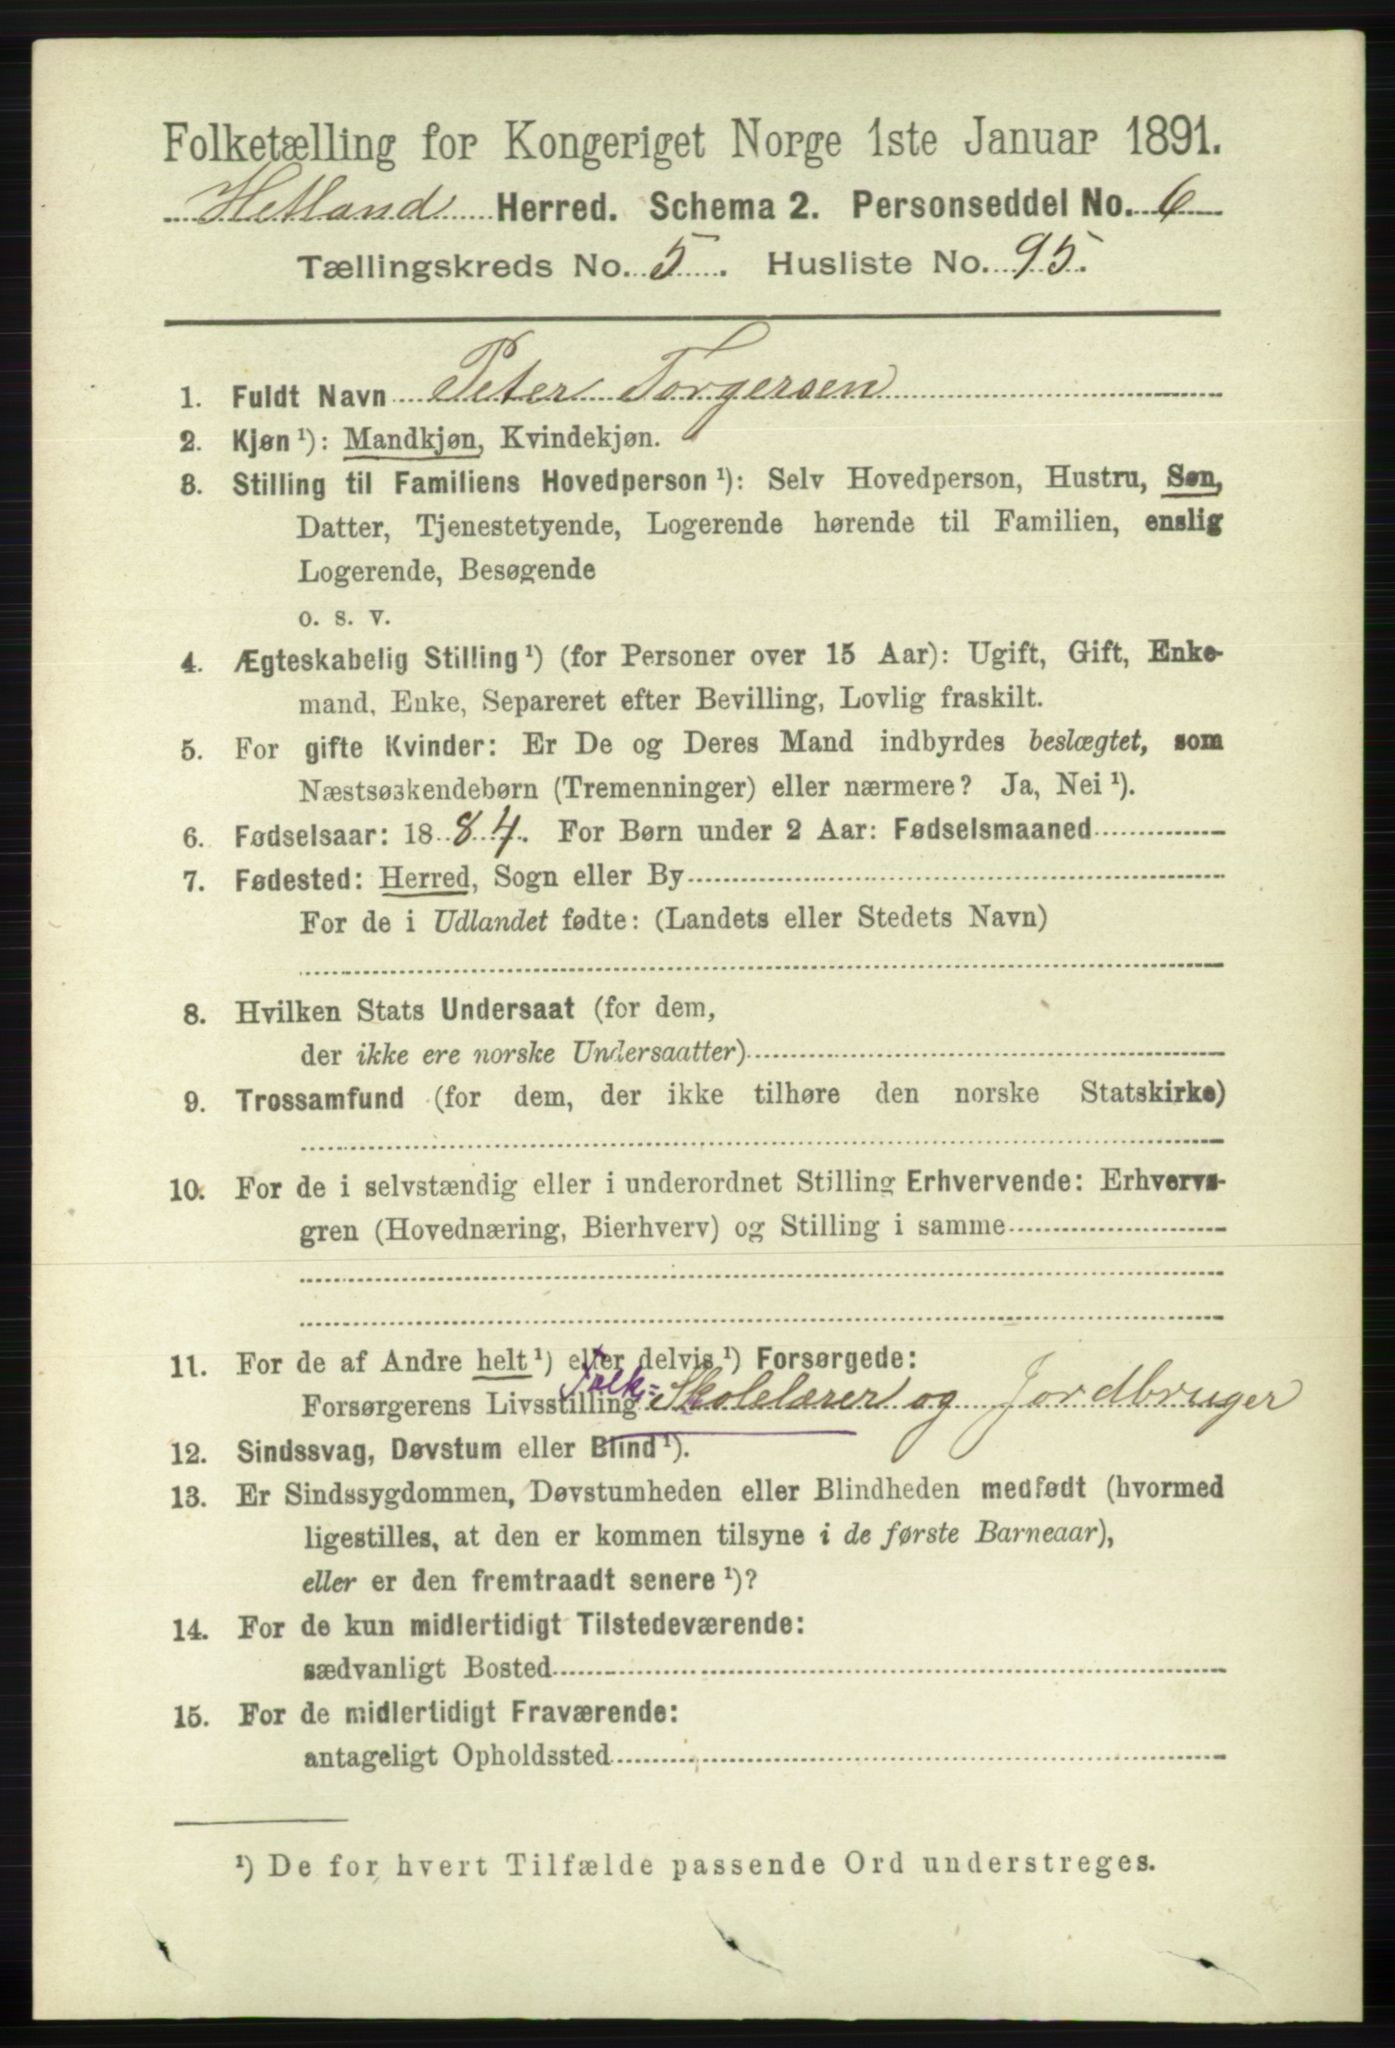 Folketælling for Kongeriget Norge 1ste Januar 1891.
Hetland Herred. Schema 2. Personseddel No. 6
Tællingskreds No. 5. Husliste No. 95.
1. Fuldt Navn Peter Torgersen
2. Kjøn ¹): Mandkjøn, Kvindekjøn.
3. Stilling til Familiens Hovedperson ¹): Selv Hovedperson, Hustru, Søn,
Datter, Tjenestetyende, Logerende hørende til Familien, enslig
Logerende, Besøgende
o. s. v.
4. Ægteskabelig Stilling ¹) (for Personer over 15 Aar): Ugift, Gift, Enke-
mand, Enke, Separeret efter Bevilling, Lovlig fraskilt.
5. For gifte Kvinder: Er De og Deres Mand indbyrdes beslægtet, som
Næstsøskendebørn (Tremenninger) eller nærmere? Ja, Nei ¹).
6. Fødselsaar: 1884. For Børn under 2 Aar: Fødselsmaaned
7. Fødested: Herred, Sogn eller By
For de i Udlandet fødte: (Landets eller Stedets Navn)
8. Hvilken Stats Undersaat (for dem,
der ikke ere norske Undersaatter)
9. Trossamfund (for dem, der ikke tilhøre den norske Statskirke)
10. For de i selvstændig eller i underordnet Stilling Erhvervende: Erhvervs-
gren (Hovednæring, Bierhverv) og Stilling i samme
11. For de af Andre helt ¹) eller delvis ¹) Forsørgede:
Forsørgerens Livsstilling Folk= Skolelærer og Jordbruger
12. Sindssvag, Døvstum eller Blind ¹).
13. Er Sindssygdommen, Døvstumheden eller Blindheden medfødt (hvormed
ligestilles, at den er kommen tilsyne i de første Barneaar),
eller er den fremtraadt senere ¹)?
14. For de kun midlertidigt Tilstedeværende:
sædvanligt Bosted
15. For de midlertidigt Fraværende:
antageligt Opholdssted
¹) De for hvert Tilfælde passende Ord understreges.